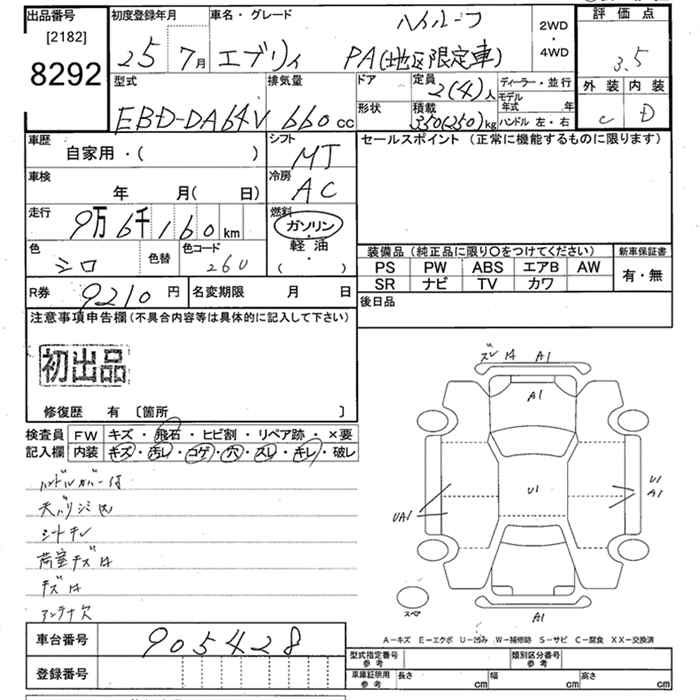 出品番号
[2182]
8292
初度登録年月
25年7月
車名・グレード
エブリィ
ハイルーフ
PA(地区限定車)
2WD
・
4WD
評価点
3.5
外装 内装
C D
型式
EBD-DA64V
排気量
660cc
ドア
形状
定員
2(4)人
積載
350(250)kg
ディーラー・並行
モデル年式 年
ハンドル 左・右
車歴
自家用・( )
シフト
MT
車検
年 月( 日)
冷房
AC
走行
9万6千160km
燃料
ガソリン
・
軽油
( )
色
シロ
色替
色コード
26U
R券 9210円
名変期限 月 日
セールスポイント(正常に機能するものに限ります)
装備品(純正品に限り〇をつけてください)
新車保証書
PS PW ABS エアB AW
SR ナビ TV カワ
有・無
後日品
注意事項申告欄(不具合内容等は具体的に記入して下さい)
初出品
修復歴 有 〔箇所 〕
検査員記入欄
FW キズ・飛石・ヒビ割・リペア跡・×要
内装 キズ・汚レ・コゲ・穴・スレ・キレ・破レ
ハンドルカバー付
天バリシミ凹
シートキレ
荷室キズ
キズ
アンテナ欠
ズレ A1
A1
U1
UA1
U1
A1
スペア
A1
A-キズ E-エクボ U-凹み W-補修跡 S-サビ C-腐食 XX-交換済
車台番号
905428
登録番号
型式指定番号
参考
類別区分番号
参考
車庫証明用
参考
長さ cm
幅 cm
高さ cm